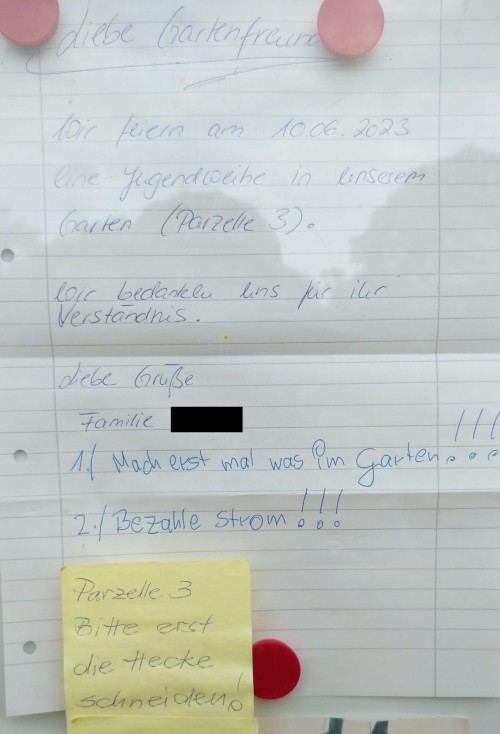 Liebe Gartenfreun
Wir feiern am 10.06.2023
eine Jugendweihe in unserem
Garten (Parzelle 3).
Wir bedanken uns für ihr
Verständnis.
Liebe Grüße
Familie
1./ Mach erst mal was im Garten!!!
2./ Bezahle Strom!!!
Parzelle 3
Bitte erst
die Hecke
schneiden!